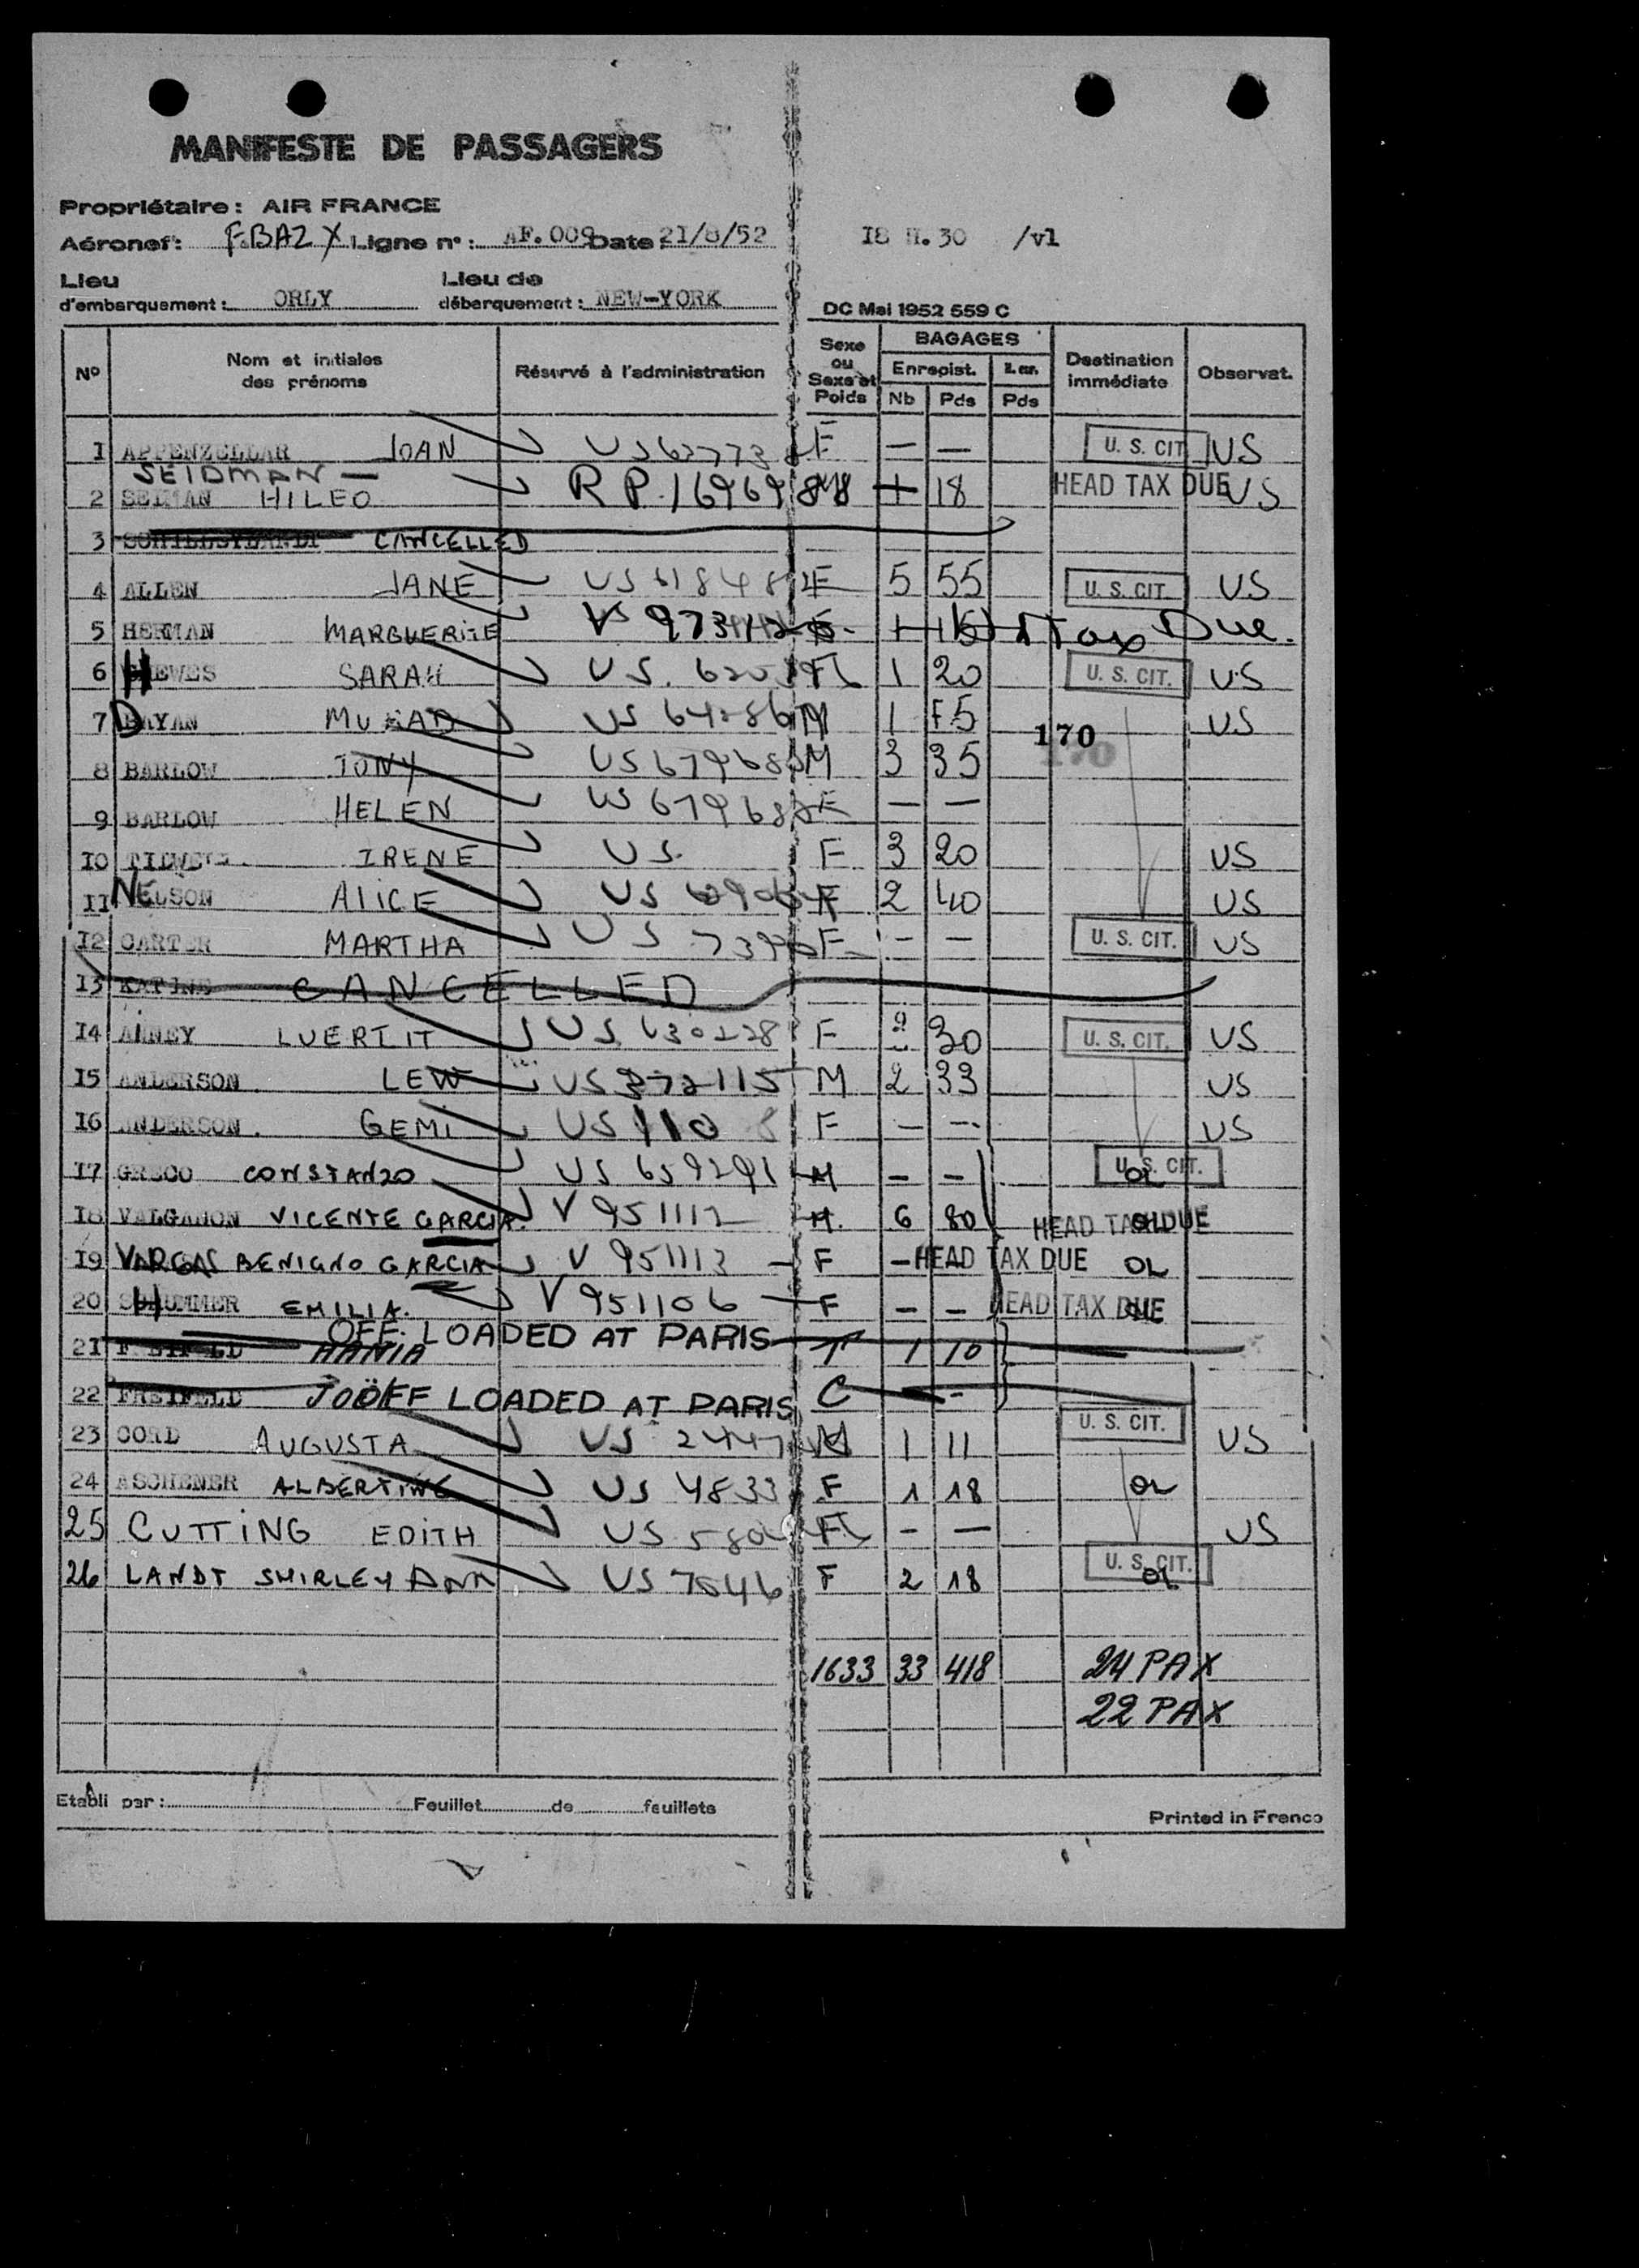 MANIFESTE DE PASSAGERS
Propriétaire : AIR FRANCE
Aéronef : F.BAZX Ligne n° : AF.009 Date 21/8/52 I8 H.30 /vl
Lieu d'embarquement : ORLY Lieu de débarquement : NEW-YORK
DC Mai 1952 559 C
N° Nom et initiales des prénoms Réservé à l'administration Sexe ou Sexe et Poids BAGAGES Enregist. Nb Pds Pds Destination immédiate Observat.
I APPENZELLAR JOAN F — — U. S. CIT US
SEIDMAN —
2 HILEO RP 169698 M 18 HEAD TAX DUE US
3 CANCELLED
4 ALLEN JANE US 61848 F 5 55 U. S. CIT. US
5 HERMAN MARGUERITE V Tax Due.
6 H EWES SARAH US. F 1 20 U. S. CIT. US
7 DAYAN MURAD US M 1 US
170
8 BARLOW TONY US 67968 M 3 35
9 BARLOW HELEN US 67968 F — —
IO IRENE US. F 3 20 US
II NELSON ALICE US F 2 40 US
I2 CARTER MARTHA US F — — U. S. CIT. US
I3 CANCELLED
I4 US 630228 F 2 30 U. S. CIT. US
I5 ANDERSON LEW US 372115 M 2 33 US
I6 ANDERSON GEMI US F — — US
I7 GRECO CONSTANZO US 659291 M — — U. S. CIT. OL
I8 VALGANON VICENTE GARCIA. V 951112 M. 6 80 HEAD TAX DUE OL
I9 VARGAS BENIGNO GARCIA V 951113 F — HEAD TAX DUE OL
20 EMILIA. V 951106 F — — HEAD TAX DUE OL
OFF. LOADED AT PARIS
21 HANIA 1 10
22 FREIFELD OFF LOADED AT PARIS C - -
23 CORD AUGUSTA US 2447 1 11 U. S. CIT. US
24 ASCHENER ALBERTINE US 4833 F 1 18 OL
25 CUTTING EDITH US F — — US
26 LANDT SHIRLEY ANN US 7546 F 2 18 U. S. CIT. OL
1633 33 418 24 PAX
22 PAX
Etabli par : Feuillet de feuillets
Printed in France